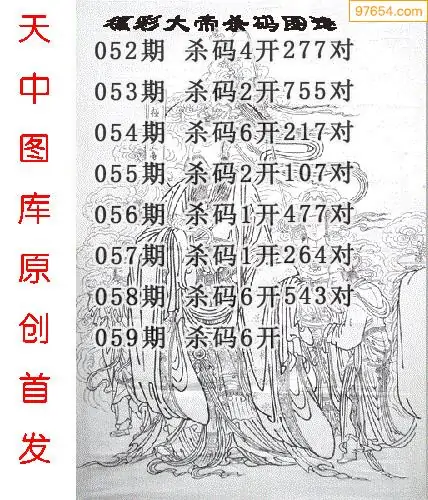 97654.com
福彩大帝杀码图迷
天中图库原创首发
052期 杀码4开277对
053期 杀码2开755对
054期 杀码6开217对
055期 杀码2开107对
056期 杀码1开477对
057期 杀码1开264对
058期 杀码6开543对
059期 杀码6开